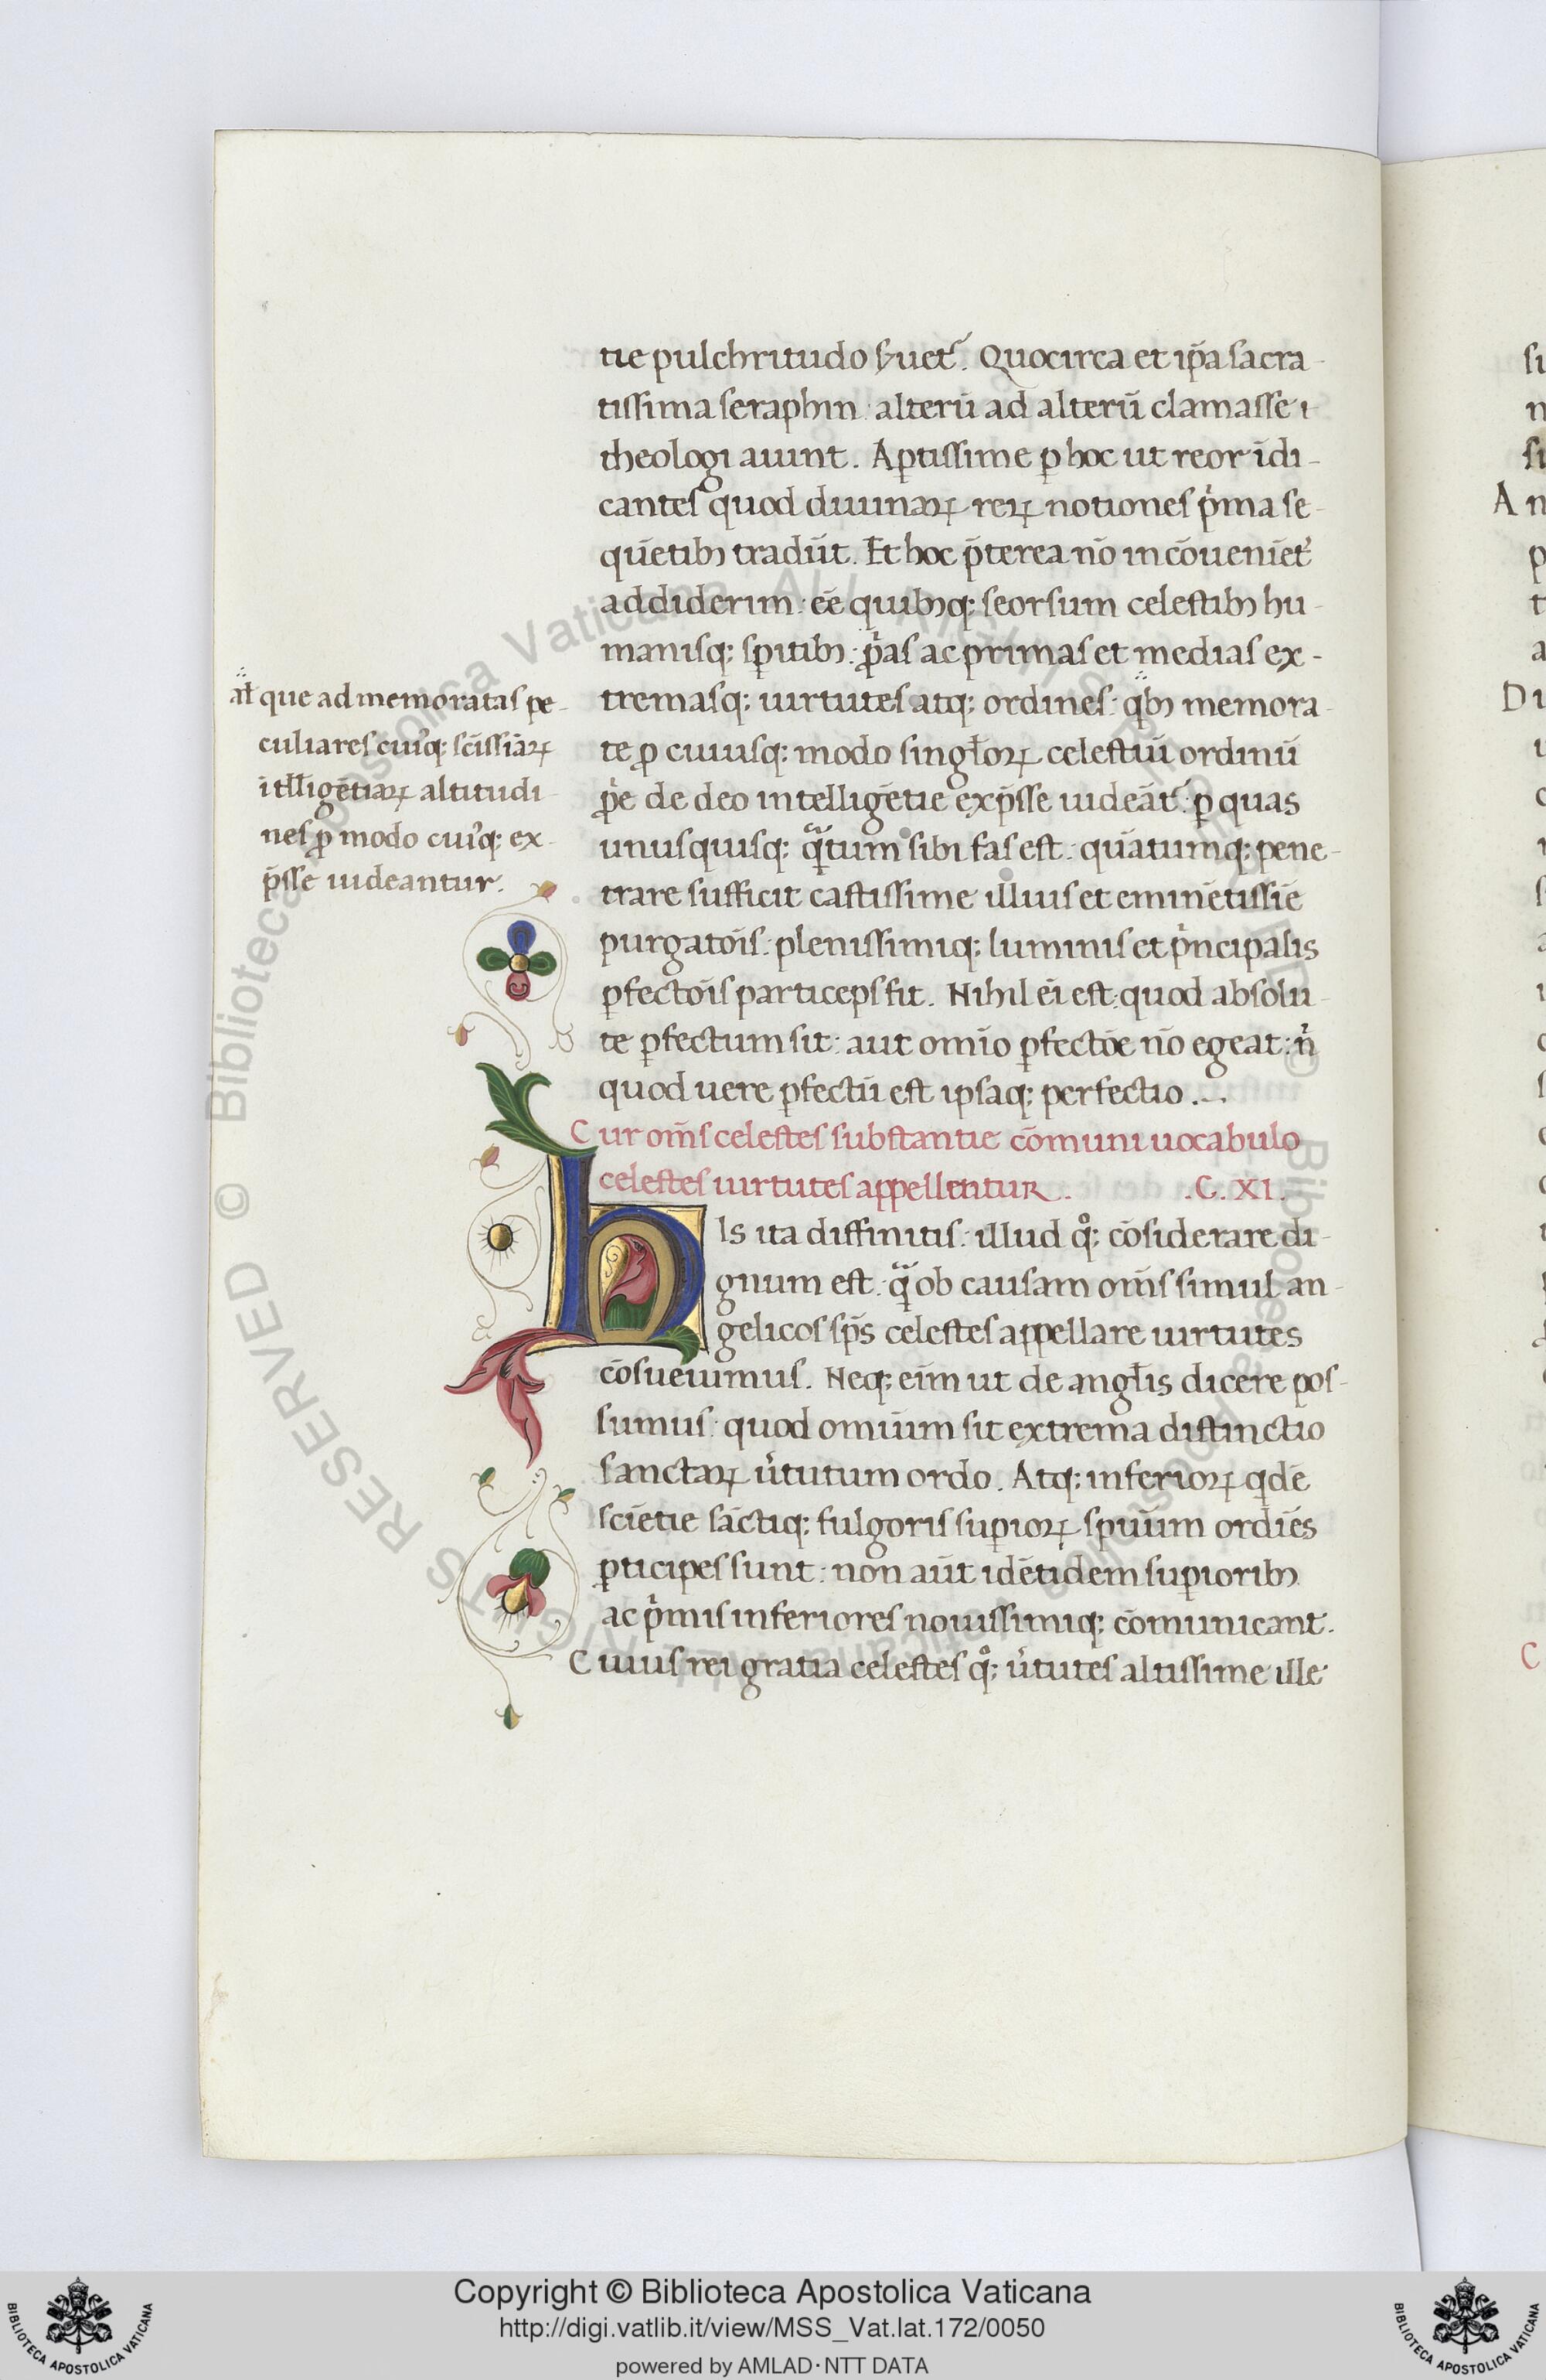 tie pulchritudo ẜuet᷒. Quocirca et ip̄a sacra-
tissima seraphin: alterū ad alterū clamasse ı
theologi aiunt. Aptissime ꝑ hoc ut reor īdi-
cantes quod diuinaꝝ reꝝ notiones p̍ma se-
quētibꝫ tradūt. Et hoc p̄terea nō incōueniēt᷒
addiderim: eē quibꝫqꝫ seorsum celestibꝫ hu-
manisqꝫ spitibꝫ: p̍as ac primas et medias ex-
tremasqꝫ uirtutes atqꝫ ordines: q̈bꝫ memora-
te ꝓ cuiusqꝫ modo singłoꝝ celestiū ordinū
p̍e de deo intelligētie exp̄sse uideāt᷒: ꝑ quas
unusquisqꝫ qᷓtum sibi fas est: quātumqꝫ pene-
trare sufficit castissime illius et eminētissīe
purgatōis: plenissimiqꝫ luminis et p̍ncipalis
ꝑfectōis particeps fit. Nihil ēi est: quod absolu-
te ꝑfectum sit: aut omīo ꝑfectōe nō egeat: n̍
quod uere ꝑfectū est ipsaqꝫ perfectio.
al̄ que ad memoratas pe-
culiares cui᷒qꝫ scīssiāꝝ
itłligētiaꝝ altitudi-
nes ꝓ modo cui᷒qꝫ ex-
p̄sse uideantur.
Cur om̄s celestes substantie cōmuni uocabulo
celestes uirtutes appellentur. .C. XI.
hIs ita diffinitis: illud qͦꝫ cōsiderare di-
gnum est: qᷓ ob causam om̄s simul an-
gelicos sp̄s celestes appellare uirtutes
cōsueuimus. Neqꝫ eīm ut de angłis dicere pos-
sumus: quod omiūm sit extrema distinctio
sanctaꝝ u̍tutum ordo. Atqꝫ inferioꝝ qdē
sciētie sāctiqꝫ fulgoris supioꝝ spuūm ordiēs
ꝑticipes sunt: non aūt idētidem supioribꝫ
ac p̍mis inferiores nouissimiqꝫ cōmunicant.
Cuius rei gratia celestes qͦꝫ u̍tutes altissime ille
Copyright © Biblioteca Apostolica Vaticana
http://digi.vatlib.it/view/MSS_Vat.lat.172/0050
powered by AMLAD·NTT DATA